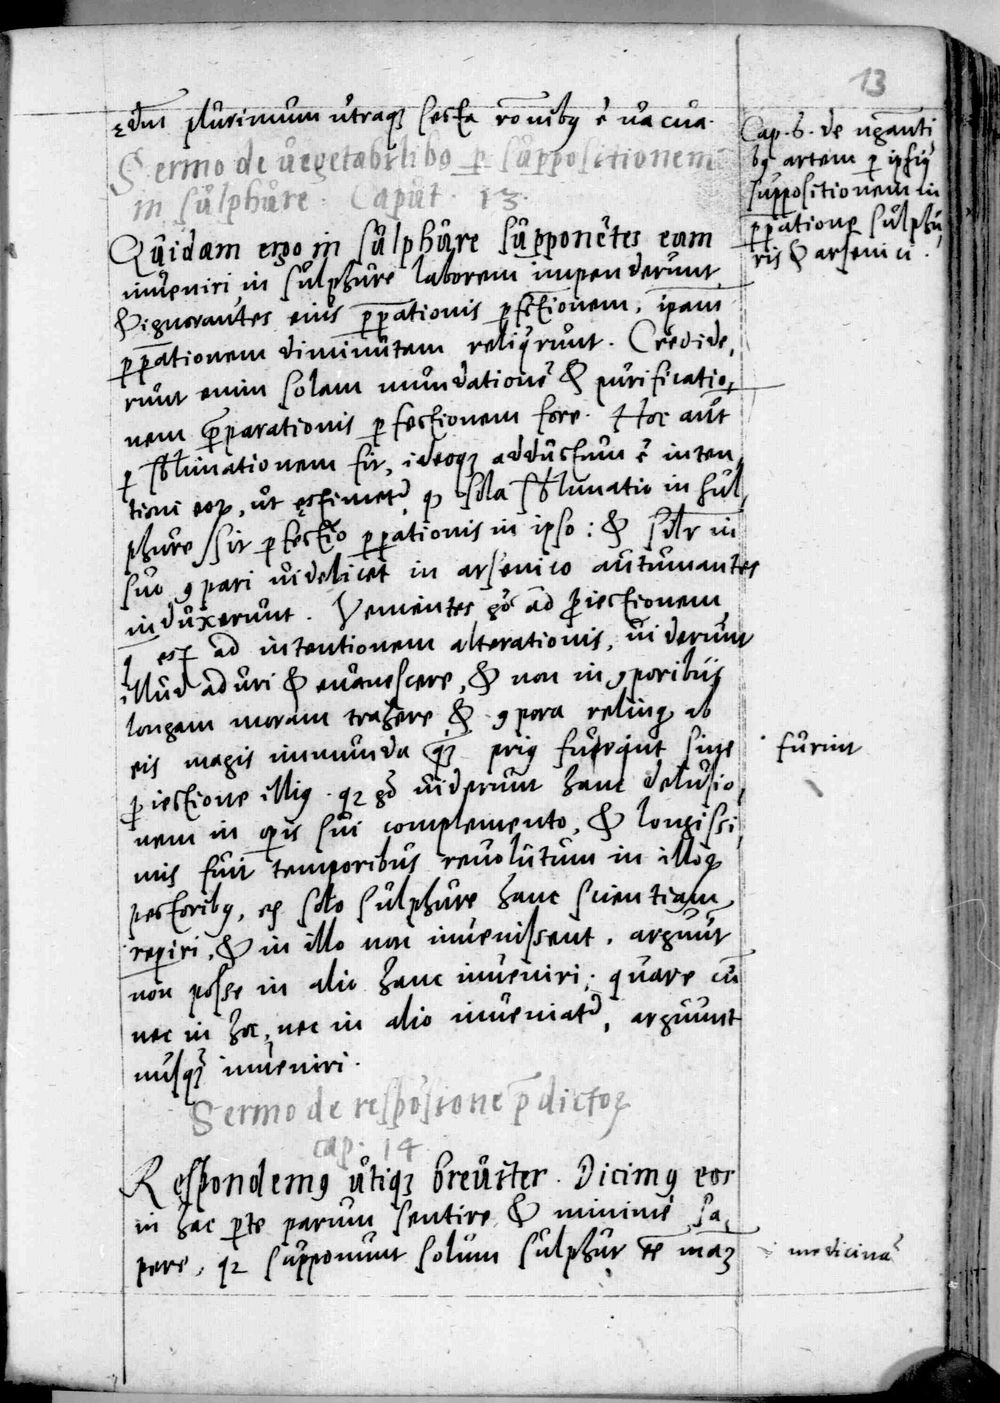 13
ędūt plurimum utraq; secta rōnibꝯ ē vacua.
Sermo de vegetabilibꝯ ꝑ suppositionem
in sulphure. Caput. 13.
Quidam ergo in sulphure supponētes eam
inveniri in sulphure laborem impenderunt
& ignorantes eius ꝑꝑationis ꝑfectionem, ipam
ꝑꝑationem diminutam reliq̄runt. Credide,
runt enim solam mundationē & purificatio,
nem p̄parationis ꝑfectionem fore. Hoc aūt
ꝑ sublimationem fit, ideoq; adductum ē inten
tioni eoꝝ, ut ęstimetᷣ, qꝫ sola sublimatio in sul,
phure sit ꝑfectio ꝑꝑationis in ipso: & silr in
suo ꝯpari videlicet in arsenico autumantes
induxerunt. Venientes gͦ ad ꝓiectionem
q̄ est ad intentionem alterationis, viderunt
illud aduri & evanescere, & non in ꝯporibus
longam moram trahere, & ꝯpora relinq; ab
eis magis immunda qͣꝫ priꝯ fuerant sine
ꝓiectione illiꝯ. qꝫ gͦ viderunt hanc delusio,
nem in oꝑis sui complemento, & longissi,
mis fuit temporibus revolutum in illoꝝ
pectoribꝯ, ex solo sulphure hanc scientiam
reperiri, & in illo non invenissent, arguūt
non posse in alio hanc inveniri: quare cū
nec in hoc, nec in alio inveniatᷣ, arguunt
nusqͣꝫ inveniri.
Sermo de respōsione p̄dictoꝝ
cap. 14
Respondemꝯ utiq; breviter. Dicimꝯ eos
in hac ꝑte parum sentire & minime sa,
pere, qꝫ supponunt solum sulphur eē maꝫ
Cap. 6. de neganti
bꝯ artem ꝑ ipsiꝯ
suppositionem in
ꝑꝑatione sulphu,
ris & arsenici.
furint
medicinā